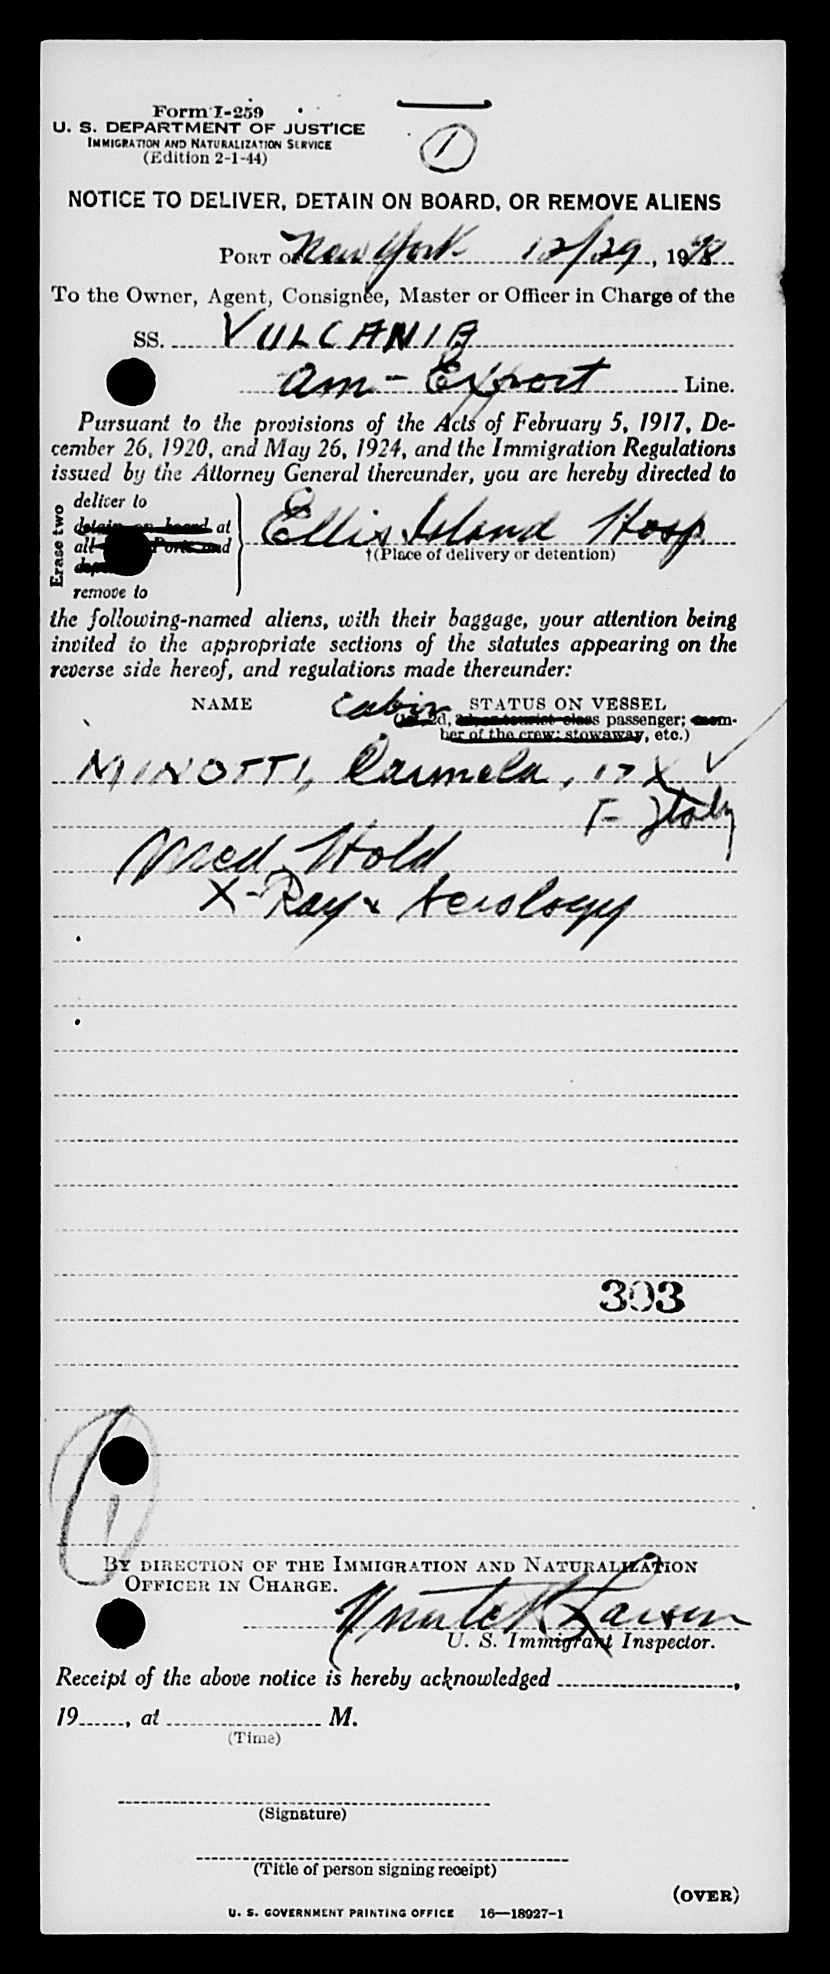 Form I-259
U. S. DEPARTMENT OF JUSTICE
IMMIGRATION AND NATURALIZATION SERVICE
(Edition 2-1-44)
1
NOTICE TO DELIVER, DETAIN ON BOARD, OR REMOVE ALIENS
PORT OF New York 12/29, 1948
To the Owner, Agent, Consignee, Master or Officer in Charge of the
SS. VULCANIA
Am-Export Line.
Pursuant to the provisions of the Acts of February 5, 1917, De-
cember 26, 1920, and May 26, 1924, and the Immigration Regulations
issued by the Attorney General thereunder, you are hereby directed to
Erase two
deliver to
detain on board at
all Ports and
remove to
Ellis Island Hosp.
†(Place of delivery or detention)
the following-named aliens, with their baggage, your attention being
invited to the appropriate sections of the statutes appearing on the
reverse side hereof, and regulations made thereunder:
NAME Cabin STATUS ON VESSEL
2d, 3d, or tourist class passenger; mem-
ber of the crew; stowaway, etc.)
MINOTTI, Carmela, 17 X
F- Italy
Med. Hold
X-Ray & Serology
303
1
BY DIRECTION OF THE IMMIGRATION AND NATURALIZATION
OFFICER IN CHARGE.
Larsen
U. S. Immigrant Inspector.
Receipt of the above notice is hereby acknowledged ,
19 , at M.
(Time)
(Signature)
(Title of person signing receipt)
(OVER)
U. S. GOVERNMENT PRINTING OFFICE 16—18927-1